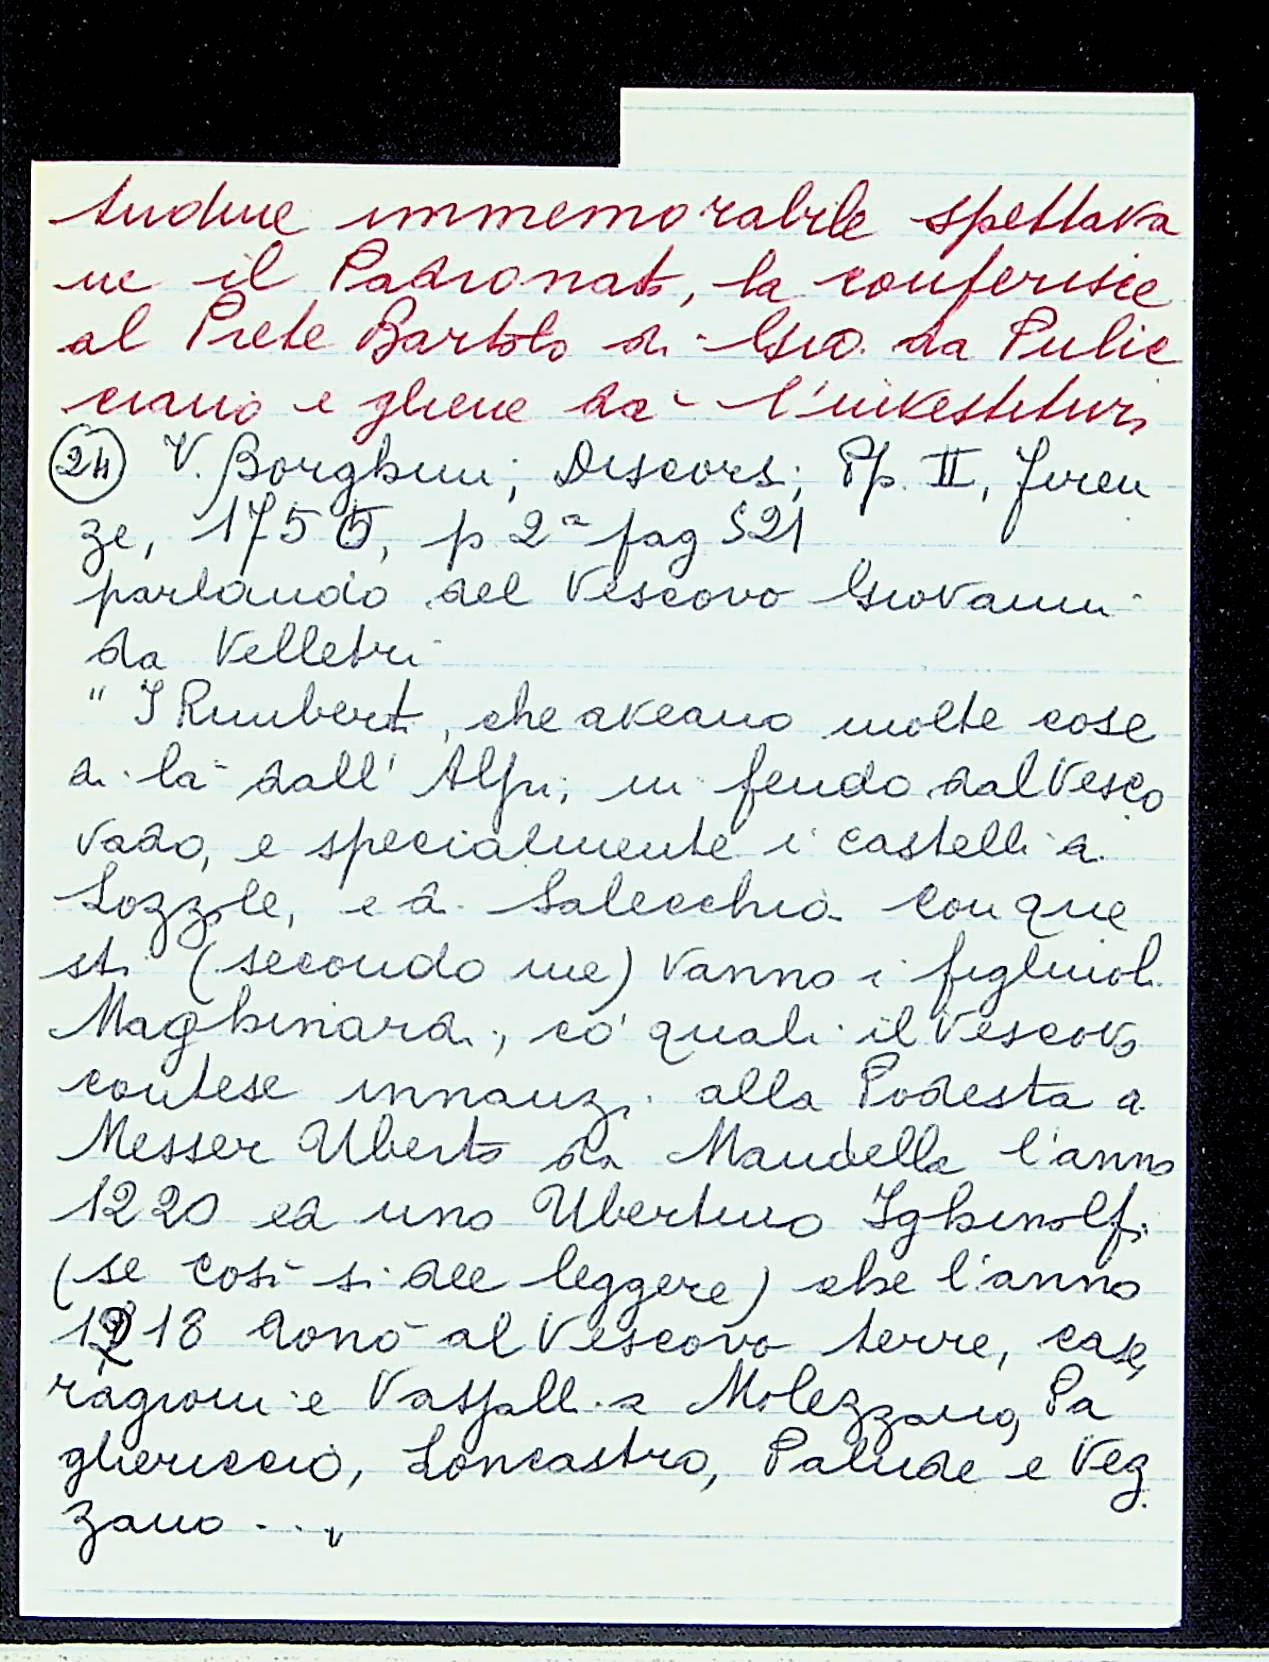 tudine immemorabile spettava
ne il Padronato, la conferisce
al Prete Bartolo di Gio. da Pulic
ciano e gliene dà l'investitura
(24) V. Borghini, Discorsi, Pp. II, Firen
ze, 1755, p 2ª pag 521
parlando del Vescovo Giovanni
da Velletri
"I Rimberti, che aveano molte cose
di là dall' Alpi, in feudo dal Vesco
vado, e specialmente i castelli di
Lozzole, e di Salecchio. Con que
sti (secondo me) vanno i figliuoli
Maghinardi, co' quali il Vescovo
contese innanzi alla Podesta di
Messer Uberto da Mandello l'anno
1220 ed uno Ubertino Ighinolfi
(se così si dee leggere) che l'anno
1218 donò al Vescovo terre, case,
ragioni e Vassalli a Molezzano, Pa
gliericcio, Loncastro, Palude e Vez
zano ...